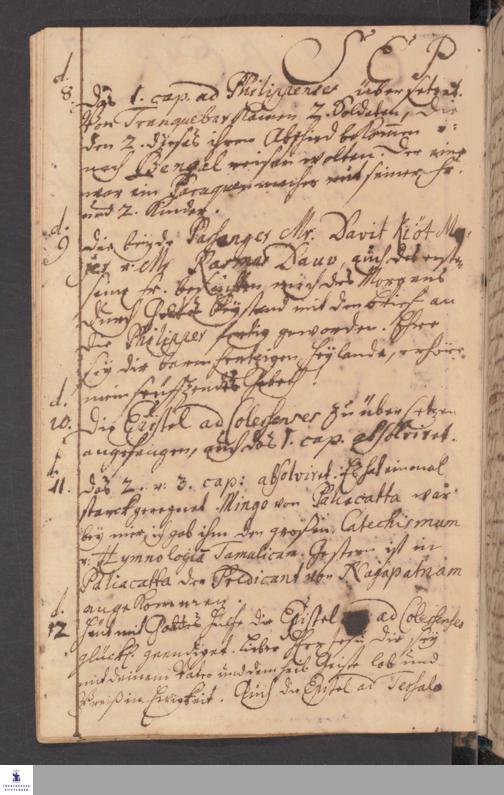 SEP
d. 8. Das 1. cap. ad Philippenses übersetzet.
Von Tranquebar kamen 2. Soldaten, die
den 2. dieses ihren Abschied bekommen u:
nach Bengal reisen wolten. Der eine
war ein mit seiner Fr.
und 2. Kinder.
d. 9 Die beyde Passanger Mr. Davit Kiöt
u. Mr. Dauv, auch des
Fr. besuchten mich des Morgens
durch Gottes Beystand mit dem Brief an
die Philipper fertig geworden. Ehre
sey die barmhertzigen Heylande, erhöre
mein seufzendes Gebet!
d. 10. Die Epistel ad Colossenses zu übersetzen
angefangen, auch das 1. cap. absolviret.
d. 11. Das 2. u: 3. cap: absolviret. Es hat einmal
starck geregnet. Mingo von Paliacatta war
bey mir, ich gab ihm den großen Catechismum
u: Hymnologia Tamulican. Gestern ist in
Paliacatta der Predicant von Nagapatnam
angekommen.
d. 12 Heut mit Gottes Hülfe die Epistel ad Colossenses
glückl. geendiget. Lieber Herr Jesu dir sey
mit deinem Vater und dem heil. Geiste lob und
Preiß in Ewigkeit. Auch die Epistel ad Tessalo
FRANCKESCHE
STIFTUNGEN